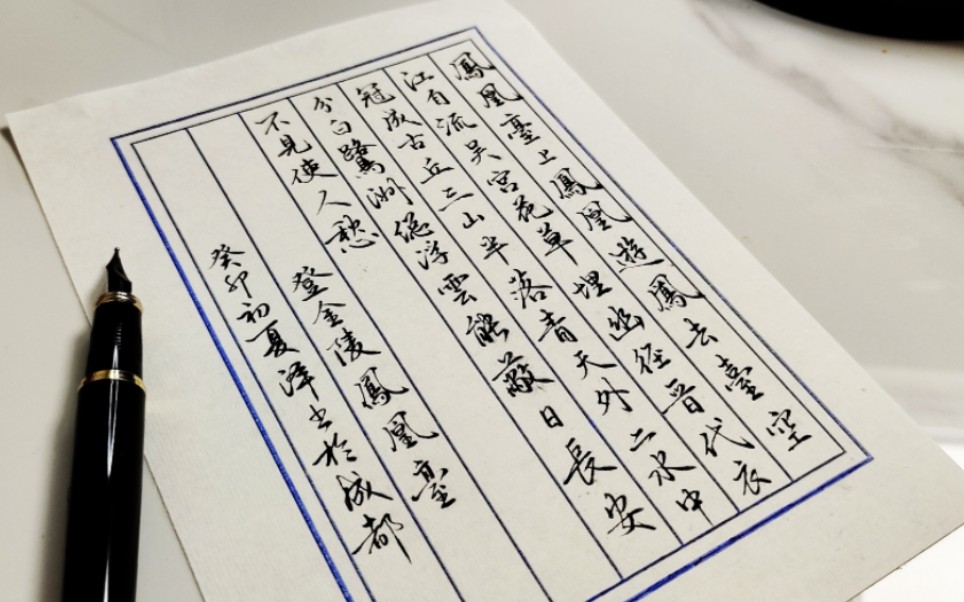 鳳凰臺上鳳凰遊鳳去臺空
江自流吳宮花草埋幽徑晉代衣
冠成古丘三山半落青天外二水中
分白鷺洲總浮雲能蔽日長安
不見使人愁
登金陵鳳凰臺
癸卯初夏澤書於成都